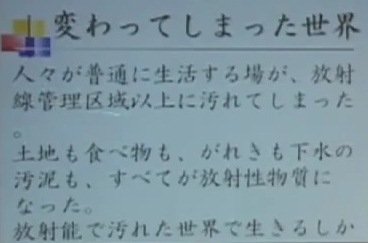 変わってしまった世界
人々が普通に生活する場が、放射
線管理区域以上に汚れてしまった
。
土地も食べ物も、がれきも下水の
汚泥も、すべてが放射性物質に
なった。
放射能で汚れた世界で生きるしか